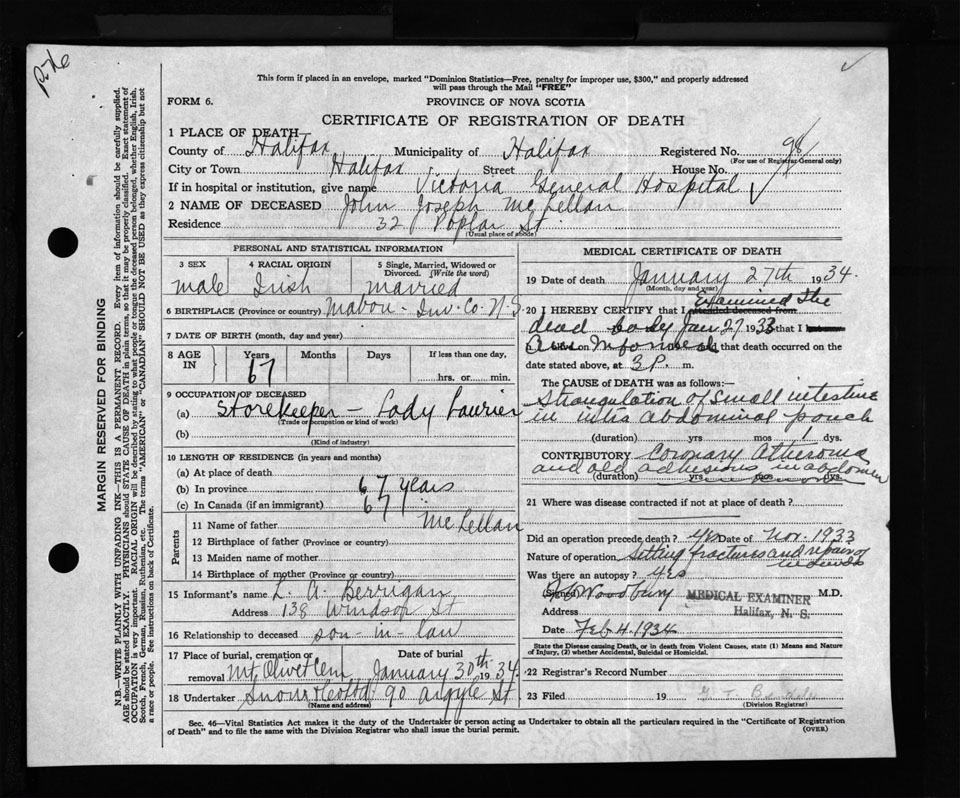 This form if placed in an envelope, marked "Dominion Statistics—Free, penalty for improper use, $300," and properly addressed
will pass through the Mail "FREE"
FORM 6.
PROVINCE OF NOVA SCOTIA
CERTIFICATE OF REGISTRATION OF DEATH
1 PLACE OF DEATH
County of Halifax Municipality of Halifax Registered No. 98
(For use of Registrar General only)
City or Town Halifax Street House No.
If in hospital or institution, give name Victoria General Hospital
2 NAME OF DECEASED John Joseph McLellan
Residence 32 Poplar St
(Usual place of abode)
PERSONAL AND STATISTICAL INFORMATION
3 SEX 4 RACIAL ORIGIN 5 Single, Married, Widowed or Divorced. (Write the word)
male Irish married
6 BIRTHPLACE (Province or country) Mabou - Inv. Co. N.S.
7 DATE OF BIRTH (month, day and year)
8 AGE IN Years Months Days If less than one day, hrs. or min.
67
9 OCCUPATION OF DECEASED
(a) Storekeeper - Lady Laurier
(Trade or occupation or kind of work)
(b)
(Kind of industry)
10 LENGTH OF RESIDENCE (in years and months)
(a) At place of death
(b) In province 67 years
(c) In Canada (if an immigrant) 67
Parents
11 Name of father McLellan
12 Birthplace of father (Province or country)
13 Maiden name of mother
14 Birthplace of mother (Province or country)
15 Informant's name L. A. Berrigan
Address 138 Windsor St
16 Relationship to deceased son-in-law
17 Place of burial, cremation or removal Mt Olivet Cem Date of burial January 30th 1934
18 Undertaker Snow 90 Argyle St
(Name and address)
MEDICAL CERTIFICATE OF DEATH
19 Date of death January 27th 1934.
(Month, day and year)
20 I HEREBY CERTIFY that I attended deceased from Examined the
dead body Jan 27 1933 that I
am informed and that death occurred on the
date stated above, at 3 P. m.
The CAUSE OF DEATH was as follows:
Strangulation of small intestine
in intra abdominal pouch
(duration) yrs mos 1 dys.
CONTRIBUTORY Coronary Atheroma
and old adhesions in abdomen
(duration) yrs mos dys.
21 Where was disease contracted if not at place of death?
Did an operation precede death? yes Date of Nov. 1933
Nature of operation Setting fractures and repairs of
Was there an autopsy? yes
(Signed) Woodbury M.D.
MEDICAL EXAMINER
Halifax, N. S.
Address
Date Feb 4. 1934
State the Disease causing Death, or in deaths from Violent Causes, state (1) Means and Nature of Injury, (2) whether Accidental, Suicidal or Homicidal.
22 Registrar's Record Number
23 Filed 19
(Division Registrar)
Sec. 46—Vital Statistics Act makes it the duty of the Undertaker or person acting as Undertaker to obtain all the particulars required in the "Certificate of Registration
of Death" and to file the same with the Division Registrar who shall issue the burial permit.
(OVER)
MARGIN RESERVED FOR BINDING
N.B.—WRITE PLAINLY WITH UNFADING INK—THIS IS A PERMANENT RECORD. Every item of information should be carefully supplied.
AGE should be stated EXACTLY. PHYSICIANS should STATE CAUSE OF DEATH in plain terms, so that it may be properly classified. Exact statement of
OCCUPATION is very important. RACIAL ORIGIN will be described by stating to what people or tongue the deceased person belonged, whether English, Irish,
Scotch, French, German, Russian, Ruthenian, etc. The terms "AMERICAN" or "CANADIAN" SHOULD NOT BE USED as they express citizenship but not
a race or people. See instructions on back of Certificate.